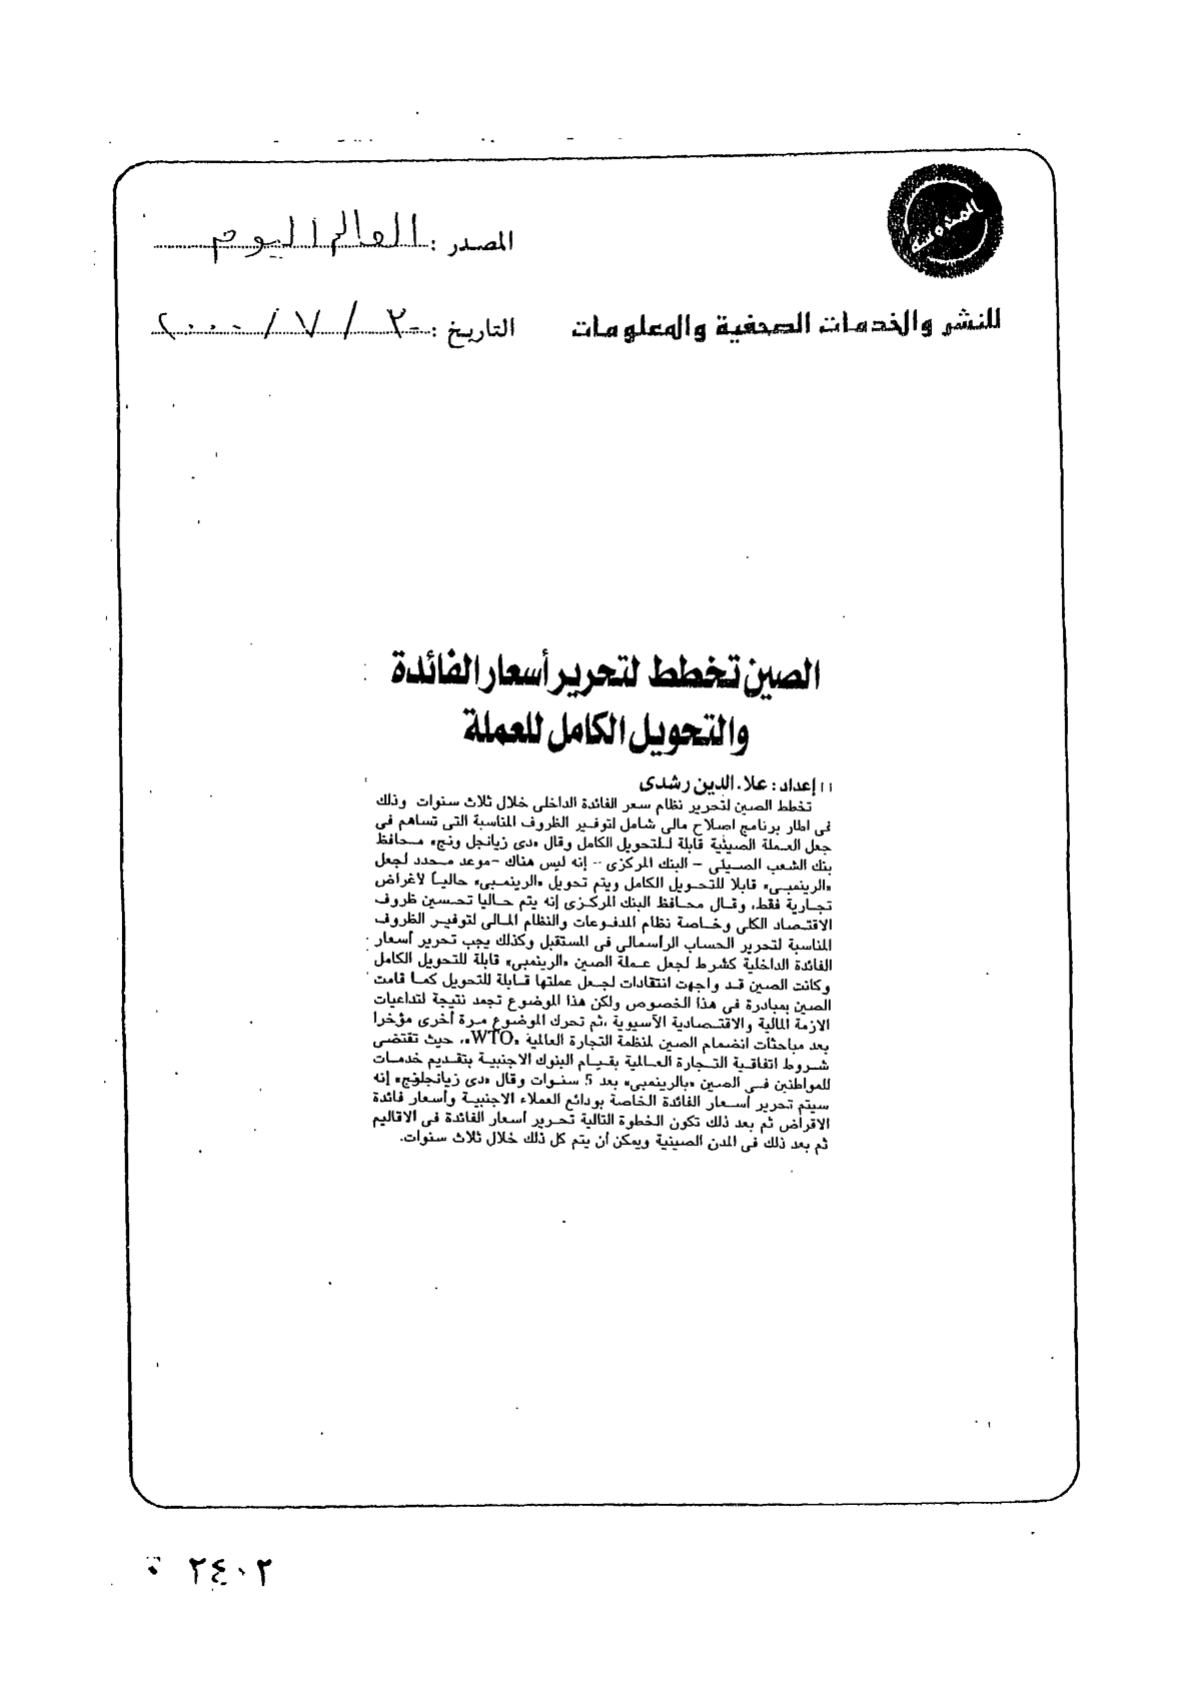 المحروسة
المصدر : العالم اليوم
للنشر والخدمات الصحفية والمعلومات
التاريخ : ٢٠ / ٧ / ٢٠٠٠
الصين تخطط لتحرير أسعار الفائدة
والتحويل الكامل للعملة
إعداد : علاء الدين رشدى
تخطط الصين لتحرير نظام سعر الفائدة الداخلى خلال ثلاث سنوات وذلك
فى اطار برنامج اصلاح مالى شامل لتوفير الظروف المناسبة التى تساهم فى
جعل العملة الصينية قابلة للتحويل الكامل وقال «دى زيانجل ونج» محافظ
بنك الشعب الصينى - البنك المركزى - إنه ليس هناك موعد محدد لجعل
«الرينمبى» قابلا للتحويل الكامل ويتم تحويل «الرينمبى» حالياً لأغراض
تجارية فقط، وقال محافظ البنك المركزى إنه يتم حاليا تحسين ظروف
الاقتصاد الكلى وخاصة نظام المدفوعات والنظام المالى لتوفير الظروف
المناسبة لتحرير الحساب الرأسمالى فى المستقبل وكذلك يجب تحرير أسعار
الفائدة الداخلية كشرط لجعل عملة الصين «الرينمبى» قابلة للتحويل الكامل
وكانت الصين قد واجهت انتقادات لجعل عملتها قابلة للتحويل كما قامت
الصين بمبادرة فى هذا الخصوص ولكن هذا الموضوع تجمد نتيجة لتداعيات
الازمة المالية والاقتصادية الآسيوية ،ثم تحرك الموضوع مرة أخرى مؤخرا
بعد مباحثات انضمام الصين لمنظمة التجارة العالمية «WTO»، حيث تقتضى
شروط اتفاقية التجارة العالمية بقيام البنوك الاجنبية بتقديم خدمات
للمواطنين فى الصين «بالرينمبى» بعد 5 سنوات وقال «دى زيانجلونج» إنه
سيتم تحرير أسعار الفائدة الخاصة بودائع العملاء الاجنبية وأسعار فائدة
الاقراض ثم بعد ذلك تكون الخطوة التالية تحرير أسعار الفائدة فى الاقاليم
ثم بعد ذلك فى المدن الصينية ويمكن أن يتم كل ذلك خلال ثلاث سنوات.
٢٤٠٢